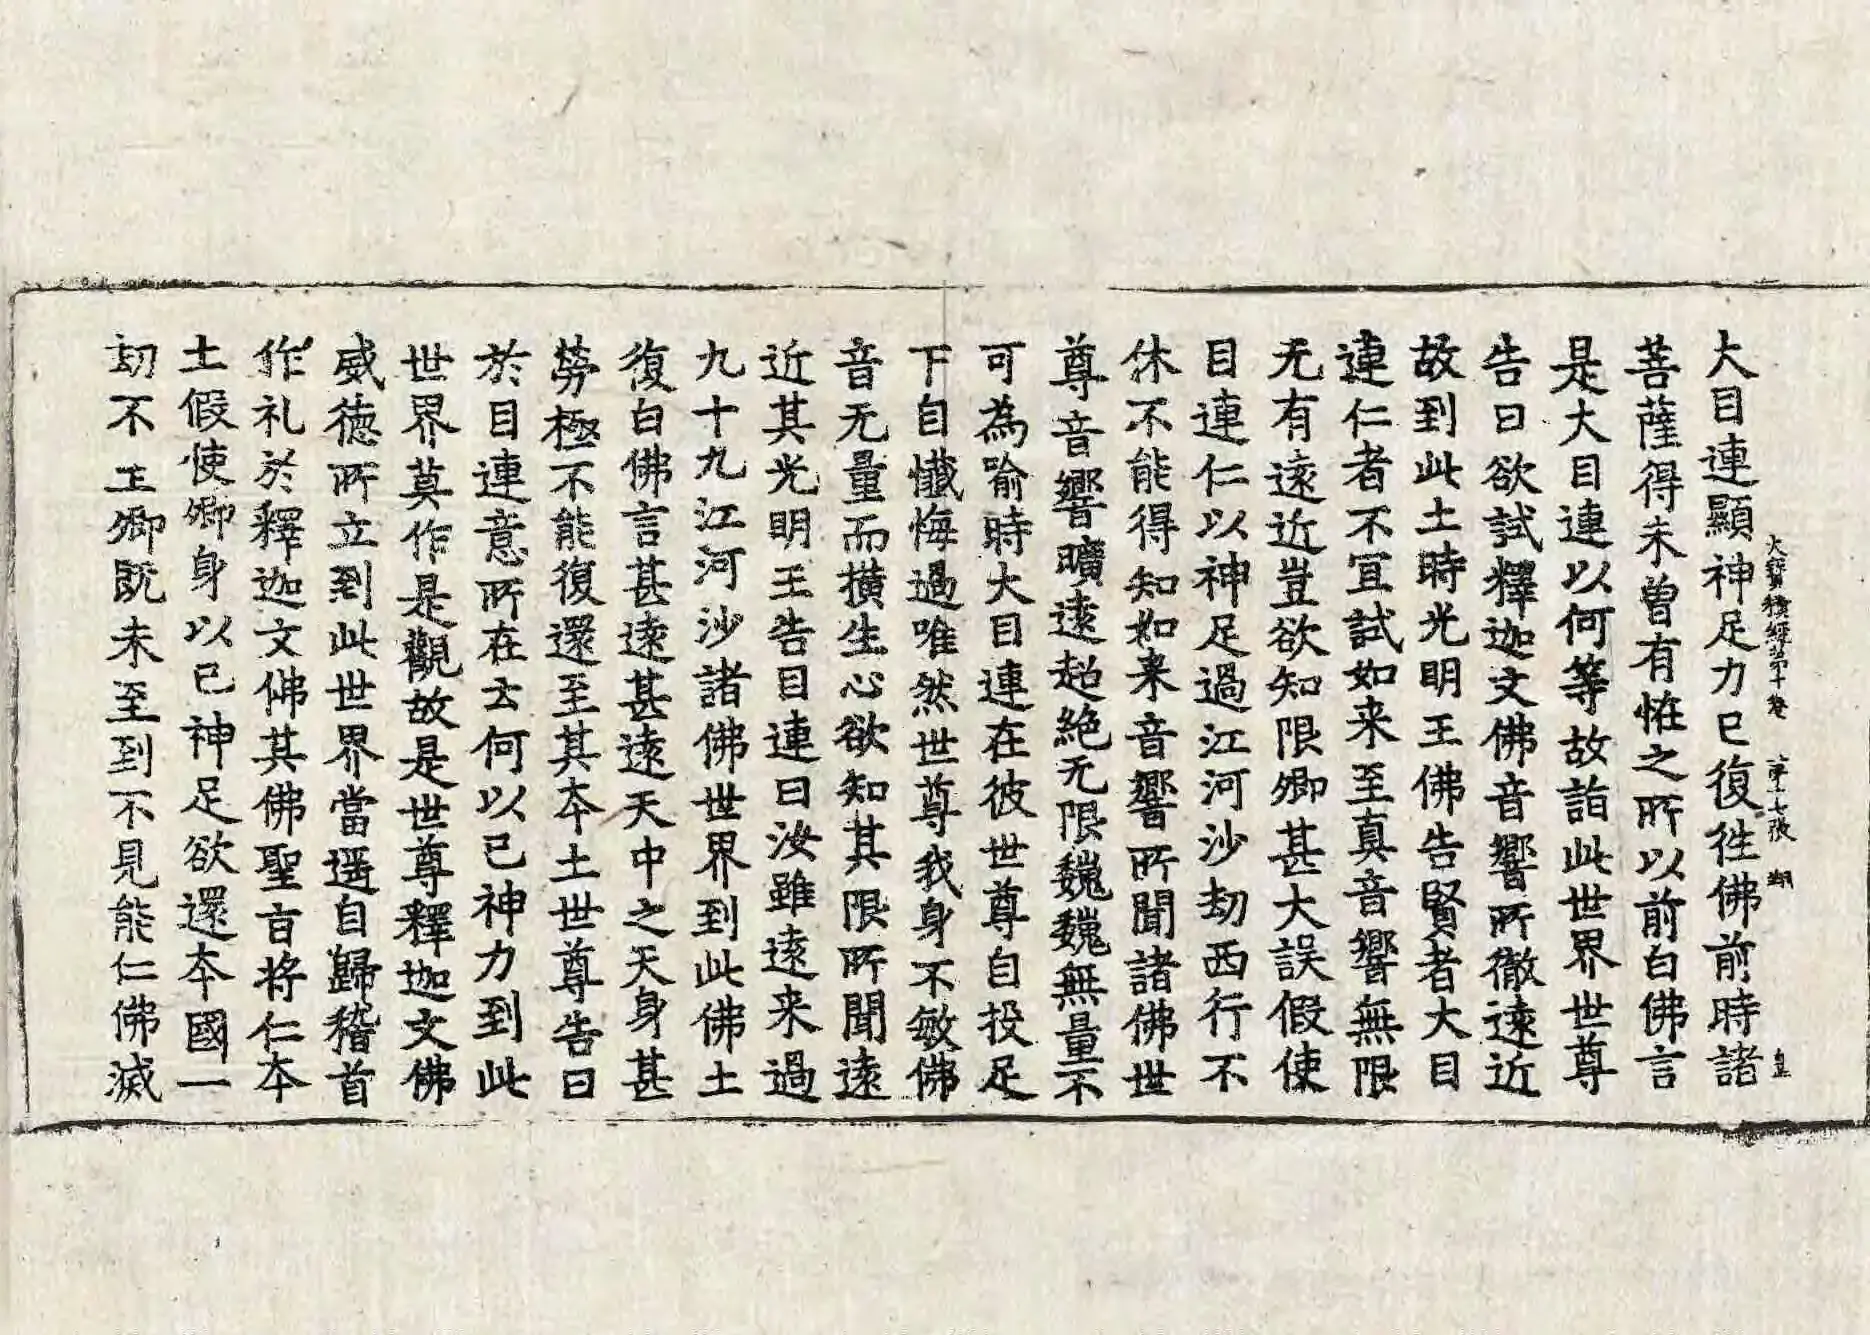 大寶積經第十卷 第十七張 翔 皇
大目連顯神足力已復徃佛前時諸
菩薩得未曾有恠之所以前白佛言
是大目連以何等故詣此世界世尊
告曰欲試釋迦文佛音響所徹遠近
故到此土時光明王佛告賢者大目
連仁者不冝試如来至真音響無限
无有遠近豈欲知限卿甚大誤假使
目連仁以神足過江河沙劫西行不
休不能得知如来音響所聞諸佛世
尊音響曠遠超絶无限巍巍無量不
可為喻時大目連在彼世尊自投足
下自懺悔過唯然世尊我身不敏佛
音无量而橫生心欲知其限所聞遠
近其光明王告目連曰汝雖遠来過
九十九江河沙諸佛世界到此佛土
復白佛言甚遠甚遠天中之天身甚
勞極不能復還至其夲土世尊告曰
於目連意所在云何以已神力到此
世界莫作是觀故是世尊釋迦文佛
威德所立到此世界當遥自歸稽首
作礼於釋迦文佛其佛聖旨将仁夲
土假使卿身以已神足欲還夲國一
劫不王卿既未至到不見能仁佛滅